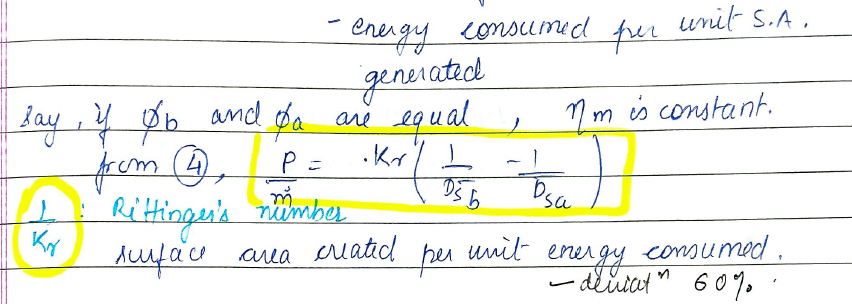 - energy consumed per unit S.A.
generated
say, if φb and φa are equal, ηm is constant.
from ④, P/ṁ = ·Kr ( 1/D̄sb - 1/D̄sa )
1/Kr : Rittinger's number
surface area created per unit energy consumed.
- deviatⁿ 60%.